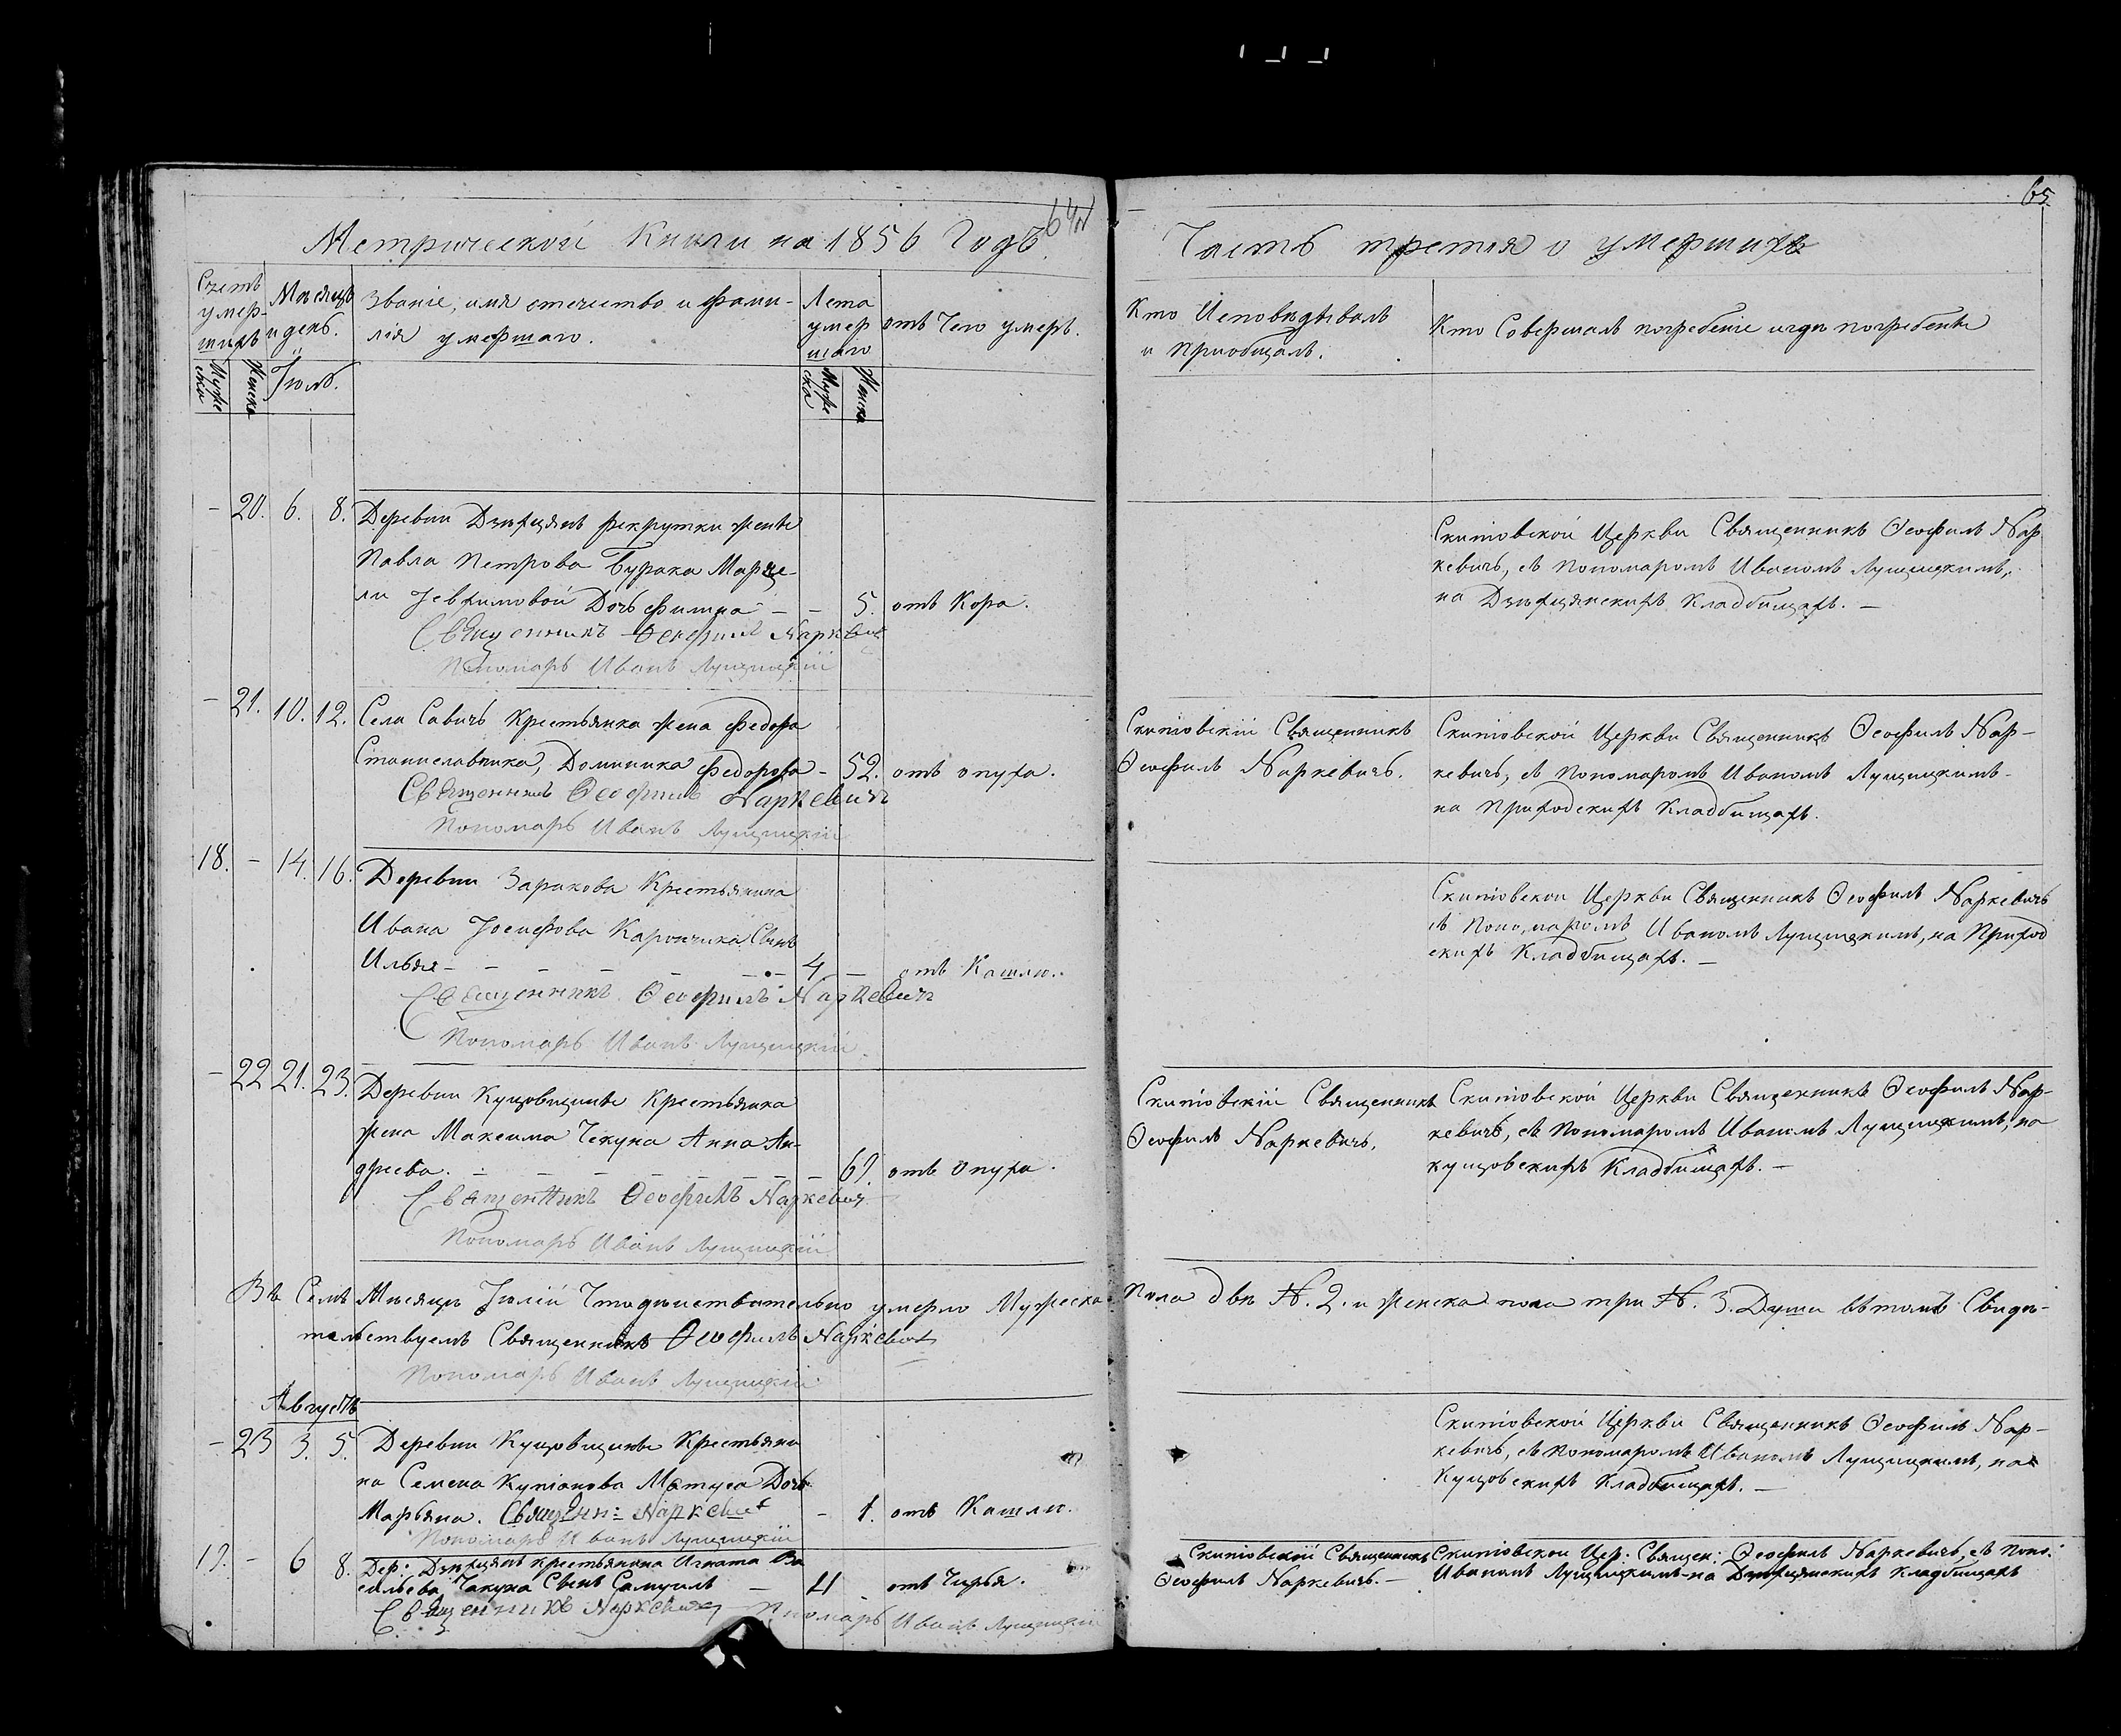 64 65
Метрической Книги на 1856 Годъ.
Часть третія о умершихъ
Счетъ умер-
шихъ
Мужеска
Женска
Мѣсяцъ
и день.
Іюль.
Званіе, имя отечество и фами-
лія умершаго.
Лета
умер
шаго
Мужеска
Женска
отъ Чего умеръ.
Кто Исповѣдывалъ
и пріобщалъ.
Кто Совершалъ погребеніе и гдѣ погребены
- 20. 6. 8. Деревни рекрутки жены
Павла Петрова Бурака Марце-
ли Іевхимовой Дочь - - 5. отъ Кора.
Священникъ Ѳеофилъ Наркевичъ
Пономарь Иванъ Лущицкій
Скитовской Церкви Священникъ Ѳеофилъ Нар
кевичъ, съ пономаромъ Иваномъ Лущицкимъ,
на Кладбищахъ. -
- 21. 10. 12. Села Савичъ Крестьянка жена Федора
Станиславчика, Доминика Федорова - 52. отъ опуха.
Священникъ Ѳеофилъ Наркевичъ
Пономарь Иванъ Лущицкій
Скитовскій Священникъ
Ѳеофилъ Наркевичъ.
Скитовской Церкви Священникъ Ѳеофилъ Нар-
кевичъ, съ пономаромъ Иваномъ Лущицкимъ-
на Приходскихъ Кладбищахъ.
18. - 14. 16. Деревни Заракова Крестьянина
Ивана Іосифова Сынъ
Илья - - - - - - 4. - отъ Кашлю.
Священникъ Ѳеофилъ Наркевичъ
Пономарь Иванъ Лущицкій.
Скитовской Церкви Священникъ Ѳеофилъ Наркевичъ
съ Пономаромъ Иваномъ Лущицкимъ, на Приход
скихъ Кладбищахъ. -
- 22 21. 23. Деревни Куцовщины Крестьянка
жена Максима Чекуна Анна Ан-
дреева. - - - - - - 69. отъ Опуха.
Священникъ Ѳеофилъ Наркевичъ
Пономарь Иванъ Лущицкій
Скитовскій Священникъ
Ѳеофилъ Наркевичъ.
Скитовской Церкви Священникъ Ѳеофилъ Нар-
кевичъ, съ пономаромъ Иваномъ Лущицкимъ, на
куцовскихъ Кладбищахъ. -
Въ Семъ Мѣсяцѣ Іюліи Что дѣйствительно умерло Мужеска пола двѣ №. 2. и женска пола три №. 3. Души вътомъ Свидѣ-
тельствуемъ Священникъ Ѳеофилъ Наркевичъ
Пономарь Иванъ Лущицкій
Августъ
- 23 3. 5. Деревни Куцовщины Крестьяни
на Семена Матуса Дочь
Марьяна. Священ: Наркевичъ - 1. отъ Кашлю.
Пономарь Иванъ Лущицкій
Скитовской Церкви Священникъ Ѳеофилъ Нар-
кевичъ, съ пономаромъ Иваномъ Лущицкимъ, на
Куцовскихъ Кладбищахъ. -
19. - 6 8. Дер: крестьянина Игната Ва
сильева Сынъ Самуилъ - 4 отъ Чирья.
Священникъ Наркевичъ Пономарь Иванъ Лущицкій
Скитовскій Священникъ
Ѳеофилъ Наркевичъ. -
Скитовской Цер: Священ: Ѳеофилъ Наркевичъ, съ Поно:
Иваномъ Лущицкимъ-на кладбищахъ